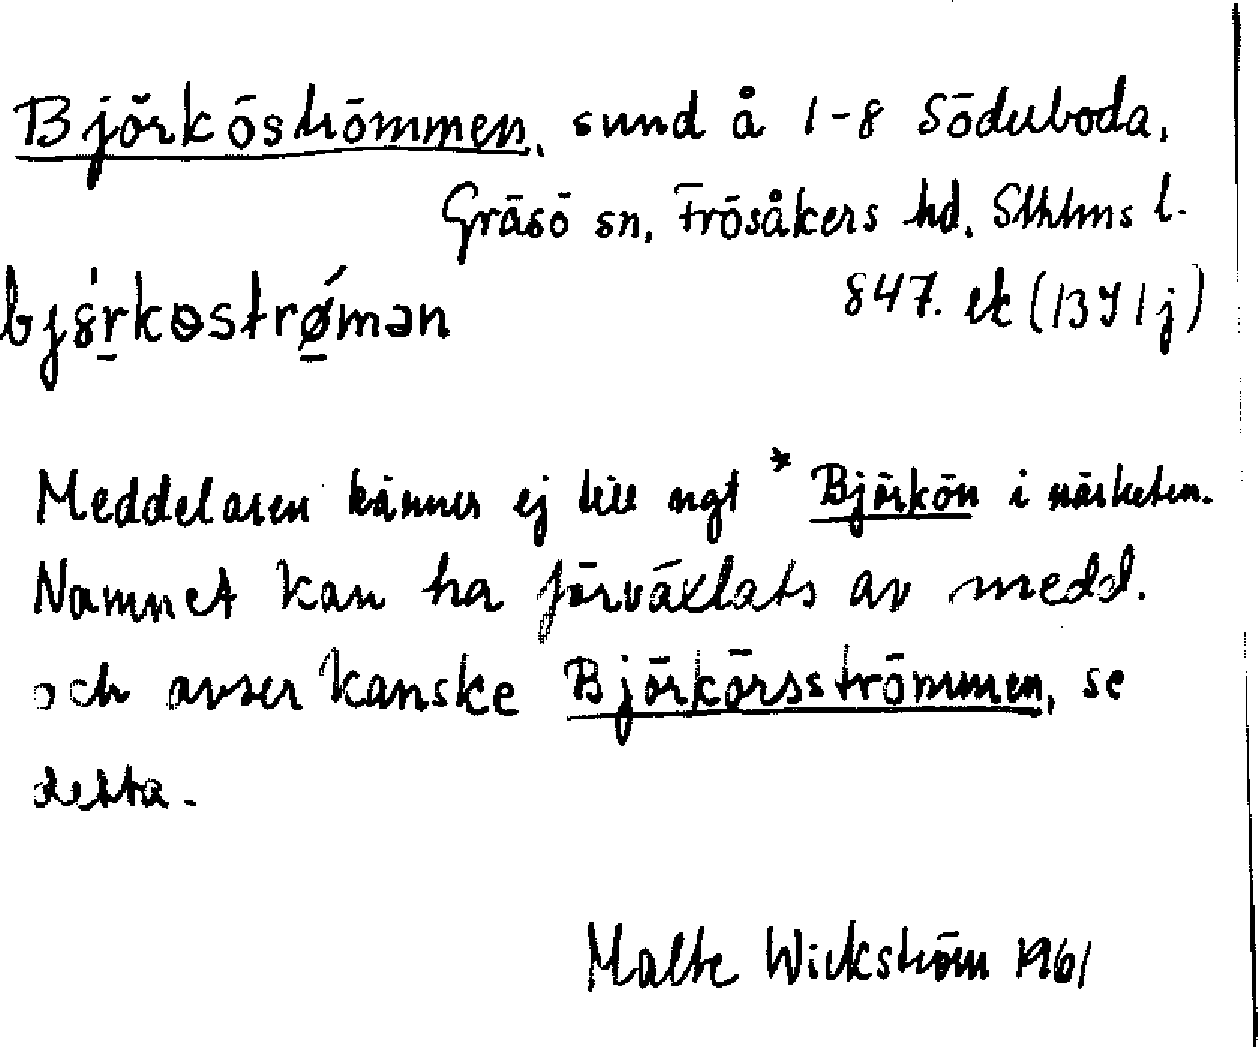 Björköströmmen, sund å 1-8 Söderboda,
Gräsö sn, Frösåkers hd. Sthlms l.
847. ek (13I 1j)
bjǿrkɵstrǿmən
Meddelaren känner ej till ngt *Björkön i närheten.
Namnet kan ha förväxlats av medd.
och avser kanske Björkörsströmmen, se
detta.
Malte Wickström 1961